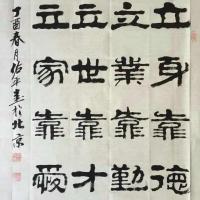 立身靠德
立業靠勤
立世靠才
立家靠愛
丁酉春月書於北京